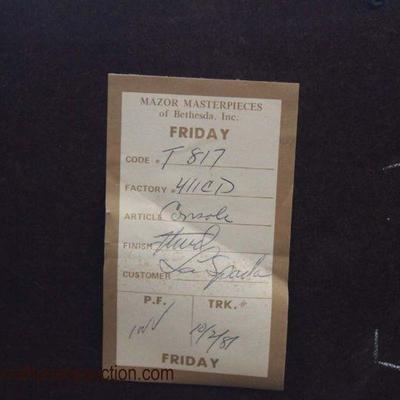 MAZOR MASTERPIECES
of Bethesda, Inc.
FRIDAY
CODE # T 817
FACTORY # 411CD
ARTICLE Console
FINISH
CUSTOMER La Spada
P.F. TRK. #
10/2/87
FRIDAY